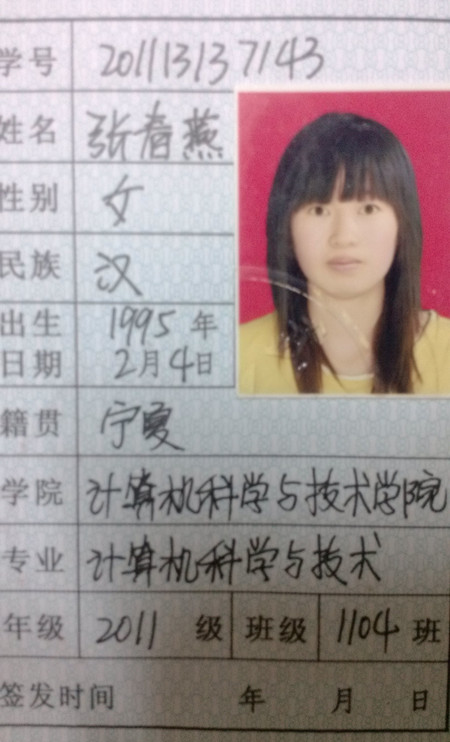 学号 201113137143
姓名 张春燕
性别 女
民族 汉
出生 1995 年
日期 2月4日
籍贯 宁夏
学院 计算机科学与技术学院
专业 计算机科学与技术
年级 2011 级 班级 1104 班
签发时间 年 月 日